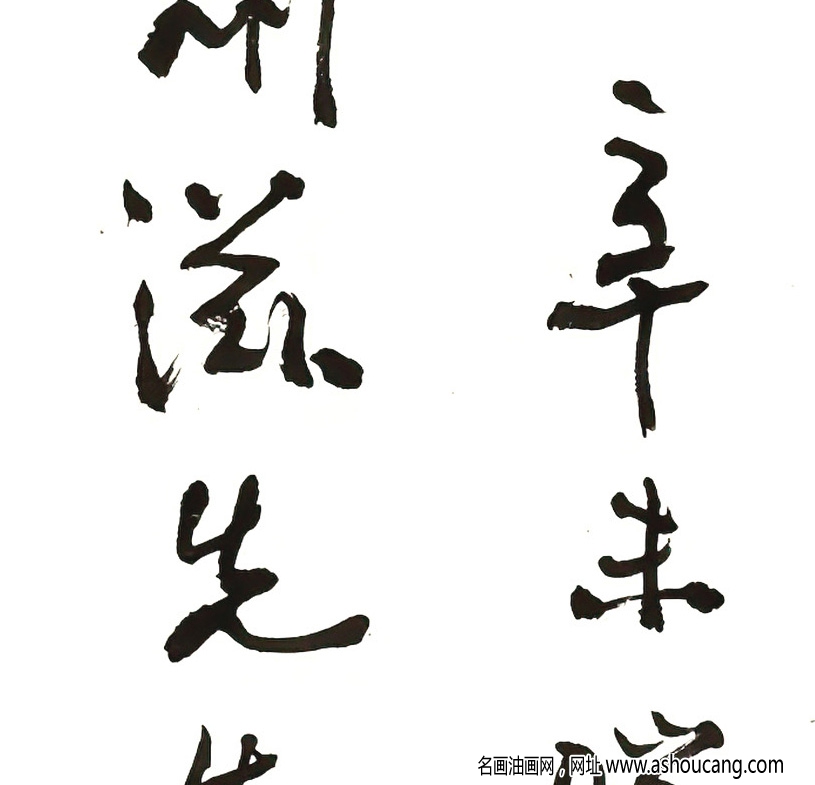 辛未
滋先生
名画油画网，网址 www.ashoucang.com